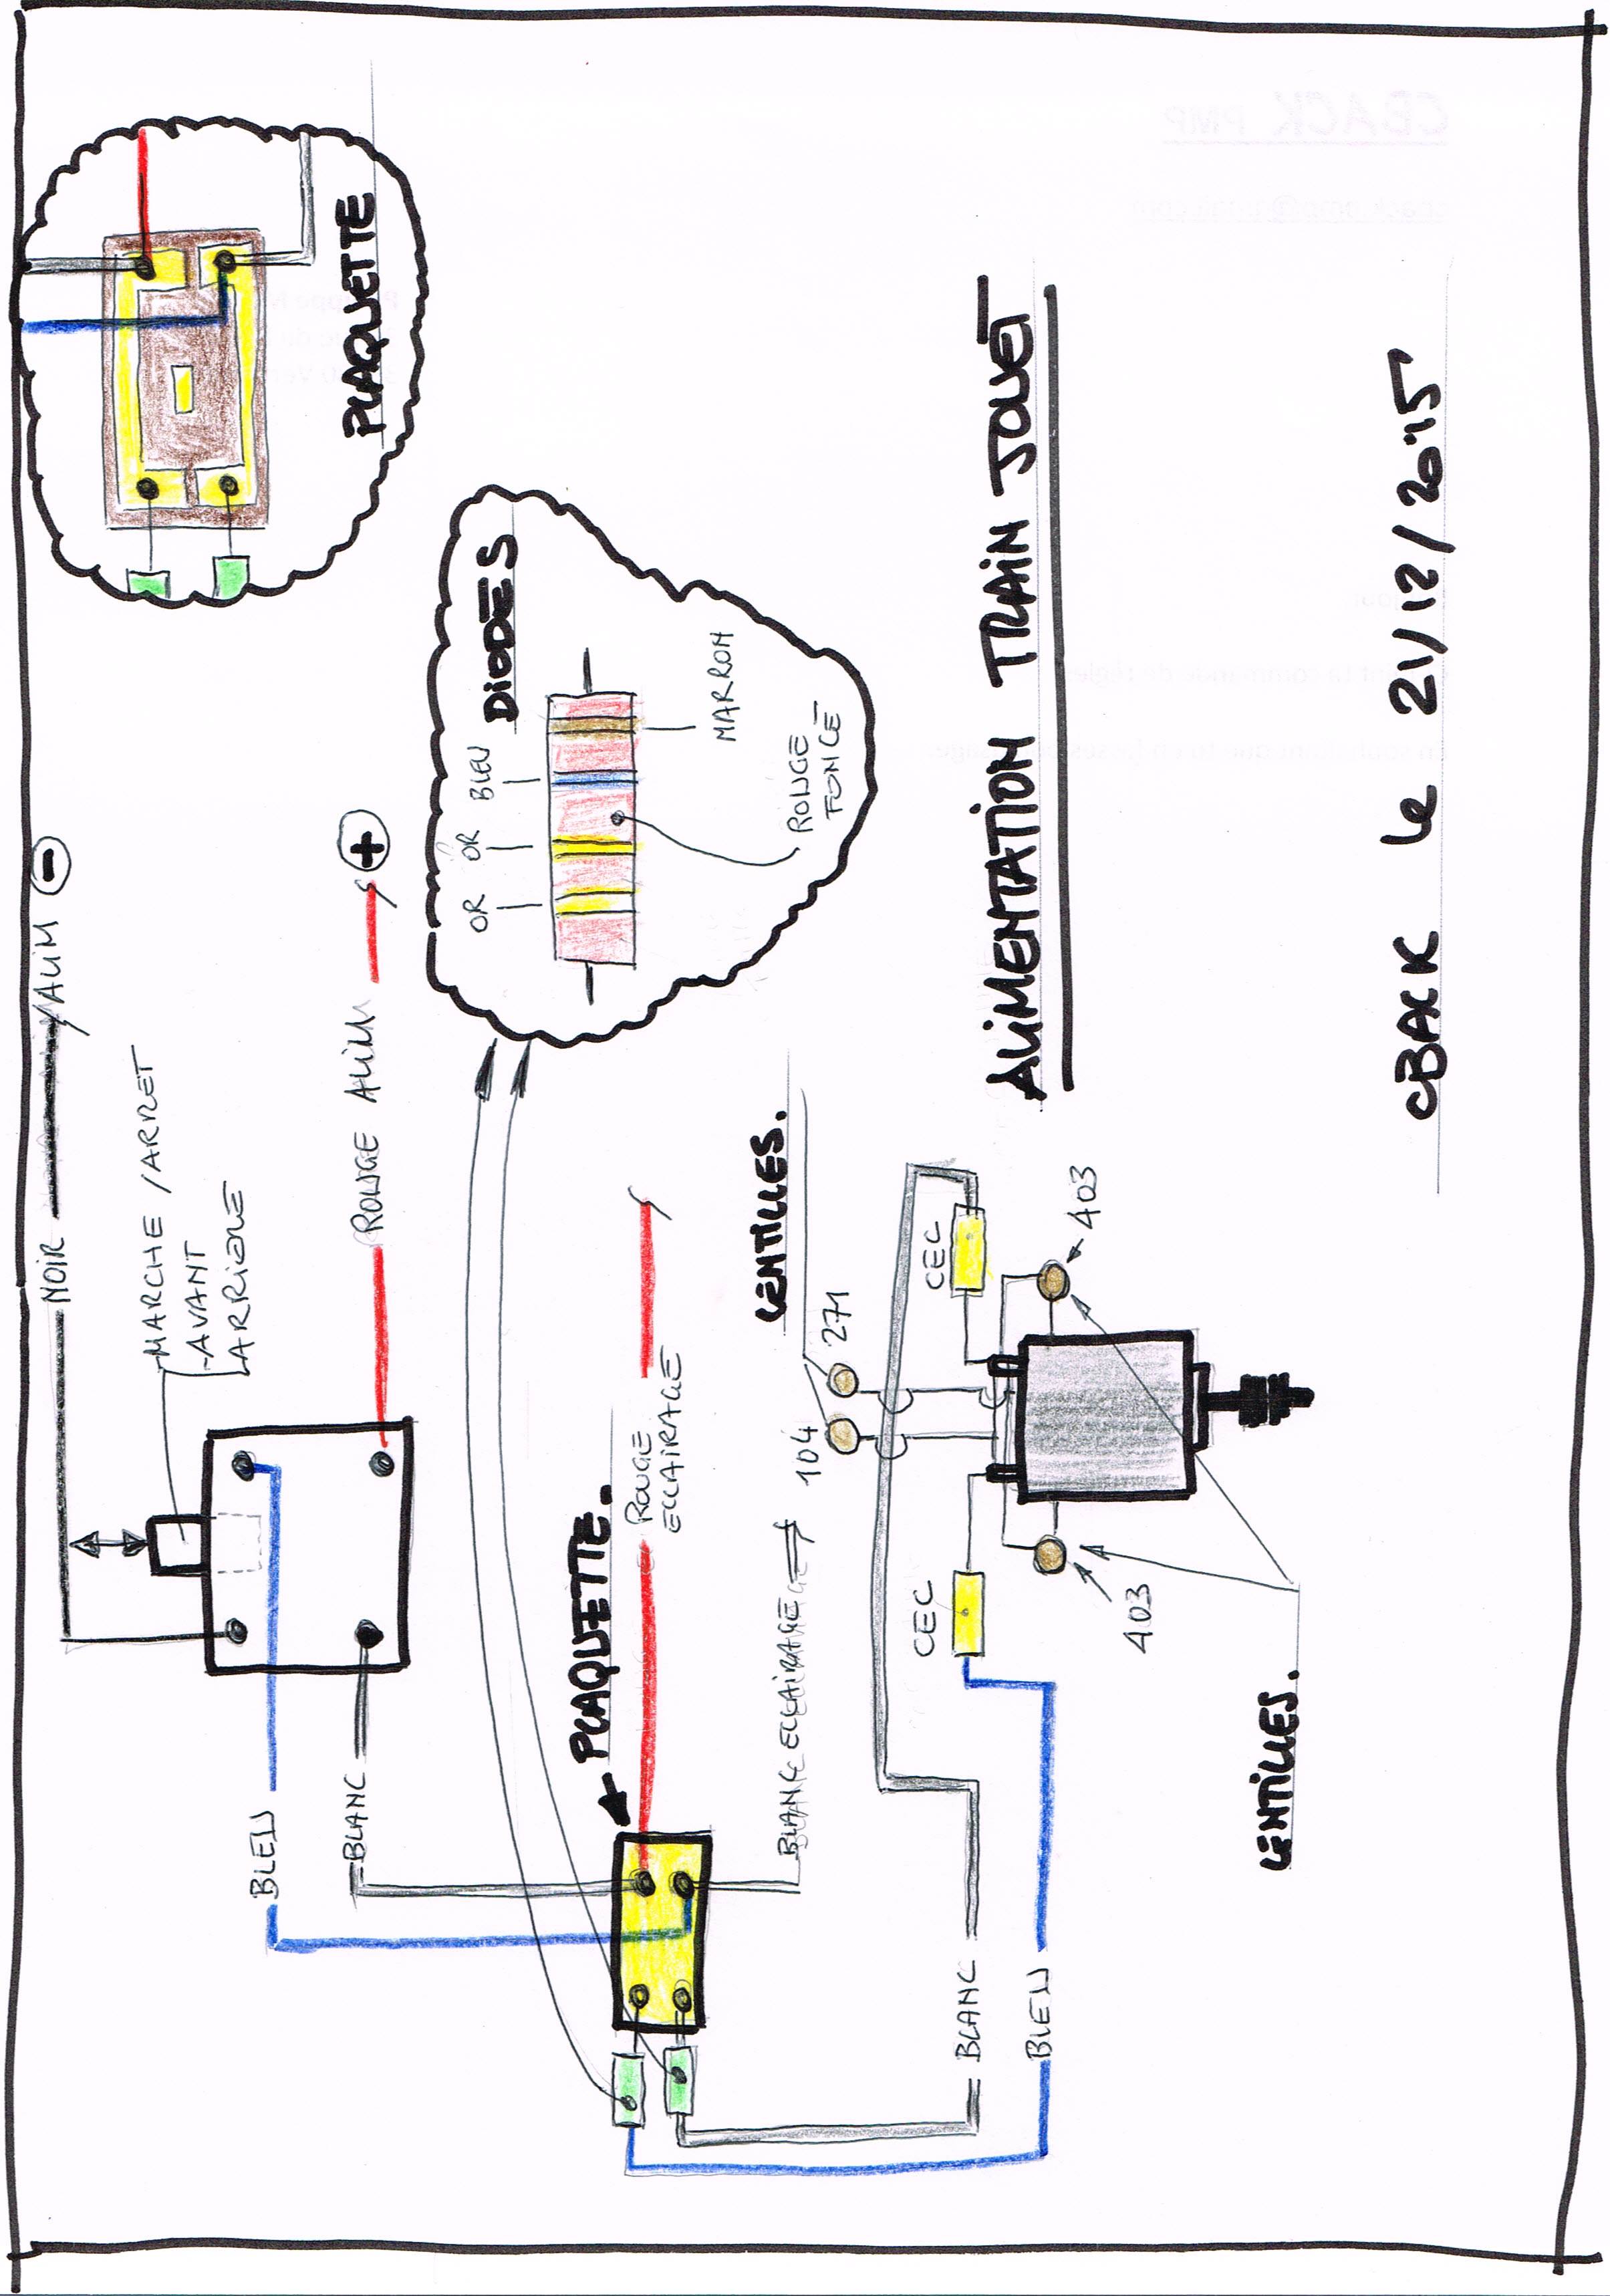 NOIR
ALIM -
MARCHE / ARRET
AVANT
ARRIERE
BLEU
BLANC
ROUGE ALIM +
PLAQUETTE
DIODES
OR
OR
BLEU
MARRON
ROUGE
FONCE
PLAQUETTE.
ROUGE
ECLAIRAGE
BLANC ECLAIRAGE
LENTILLES.
104
271
CEC
CEC
403
403
BLANC
BLEU
LENTILLES.
ALIMENTATION TRAIN JOUET
CBACK le 21/12/2015
CBACK PMP